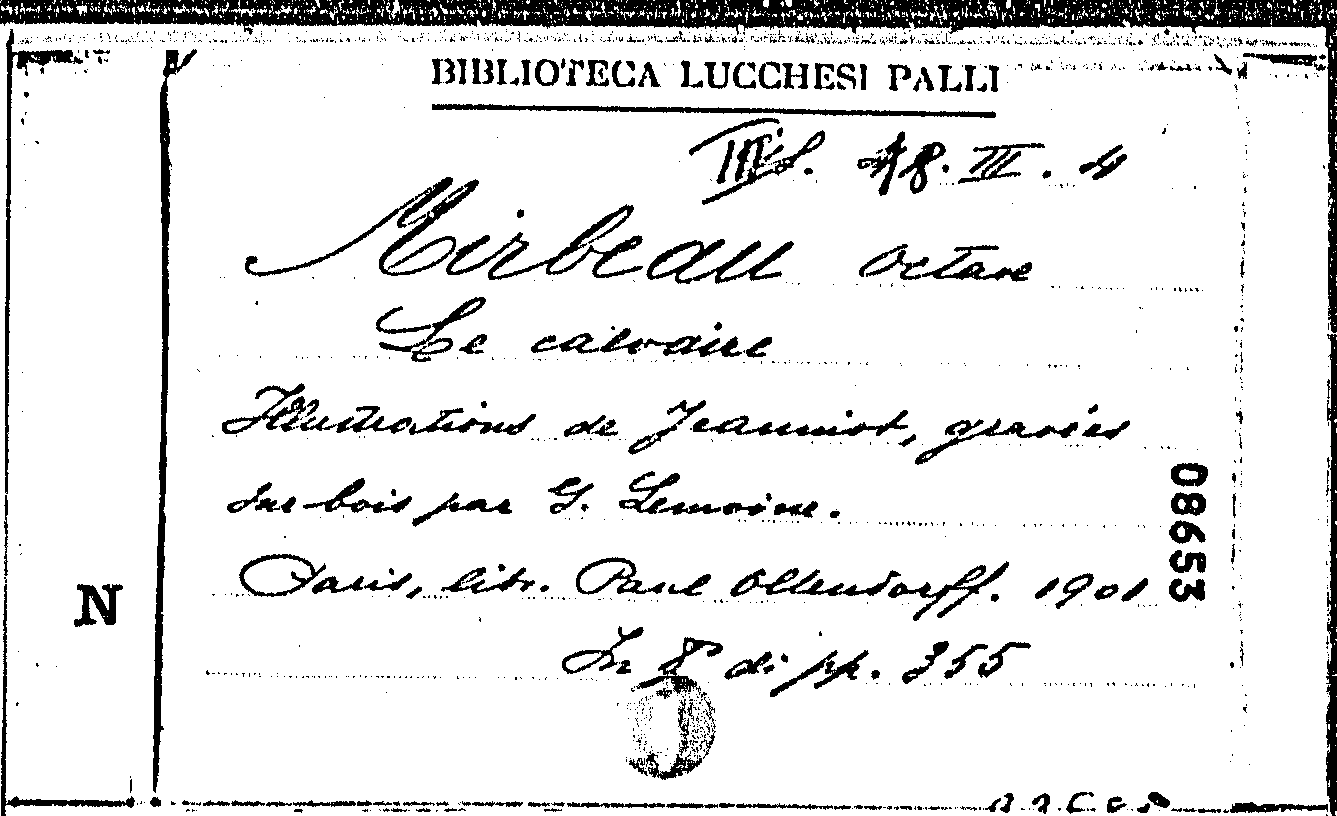 BIBLIOTECA LUCCHESI PALLI
18. III. 4
Mirbeau Octave
Le calvaire
Illustrations de Jeanniot, gravées
sur bois par G. Lemoine.
Paris, libr. Paul Ollendorff. 1901
In 8° di pp. 355
08653
N